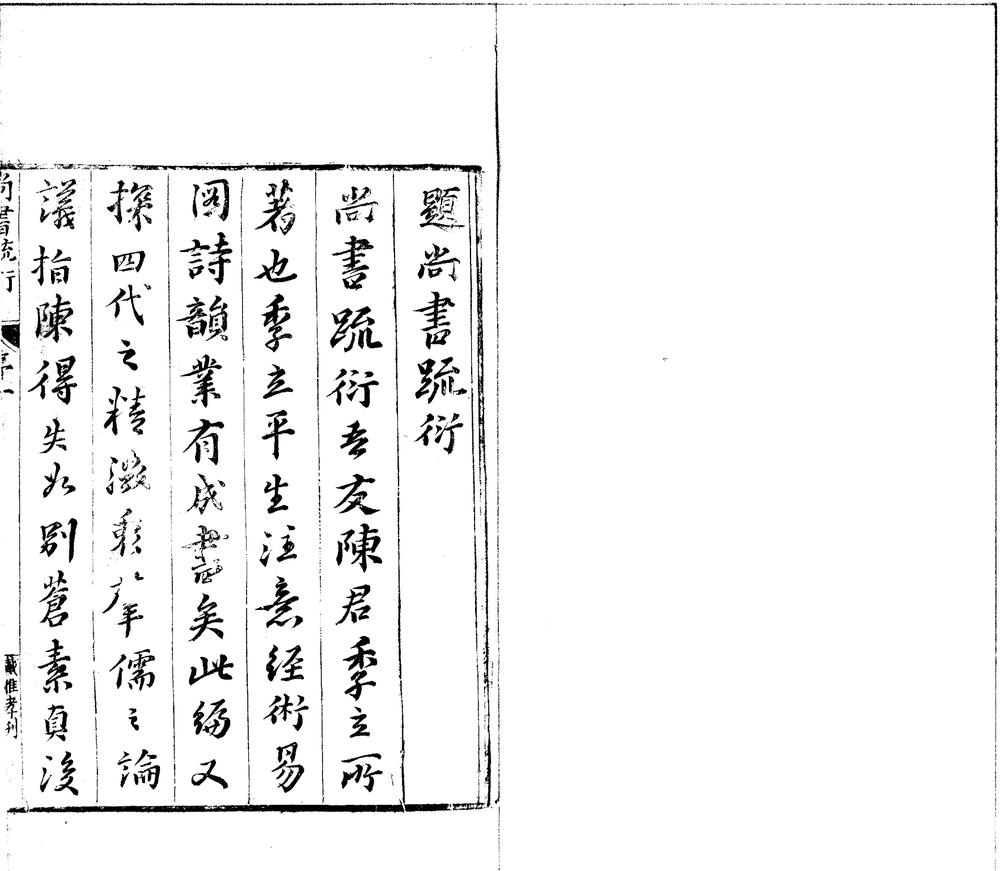 題尚書疏衍
尚書疏衍吾友陳君季立所
著也季立平生注意經術易
圖詩韻業有成書矣此編又
探四代之精微年儒之論
議指陳得失如別蒼素真後
尚書疏衍
序一
戴惟孝刊